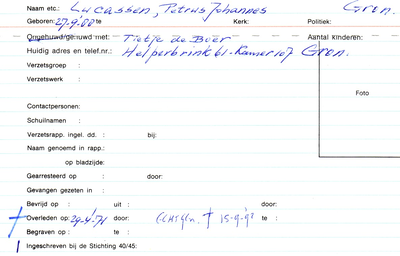 Naam etc.: Lucassen, Petrus Johannes Gron.
Geboren: 27-9-'00 te Kerk: Politiek:
Ongehuwd/gehuwd met: Tietje de Boer Aantal kinderen:
Huidig adres en telef.nr.: Helperbrink 61 - Kamer 107 Gron.
Verzetsgroep :
Verzetswerk :
Foto
Contactpersonen:
Schuilnamen :
Verzetsrapp. ingel. dd. : bij:
Naam genoemd in rapp.:
op bladzijde:
Gearresteerd op : door:
Gevangen gezeten in :
Bevrijd op : uit : door:
Overleden op: 29-4-'71 door: † 15-9-'91 te :
Begraven op : te :
Ingeschreven bij de Stichting 40/45: